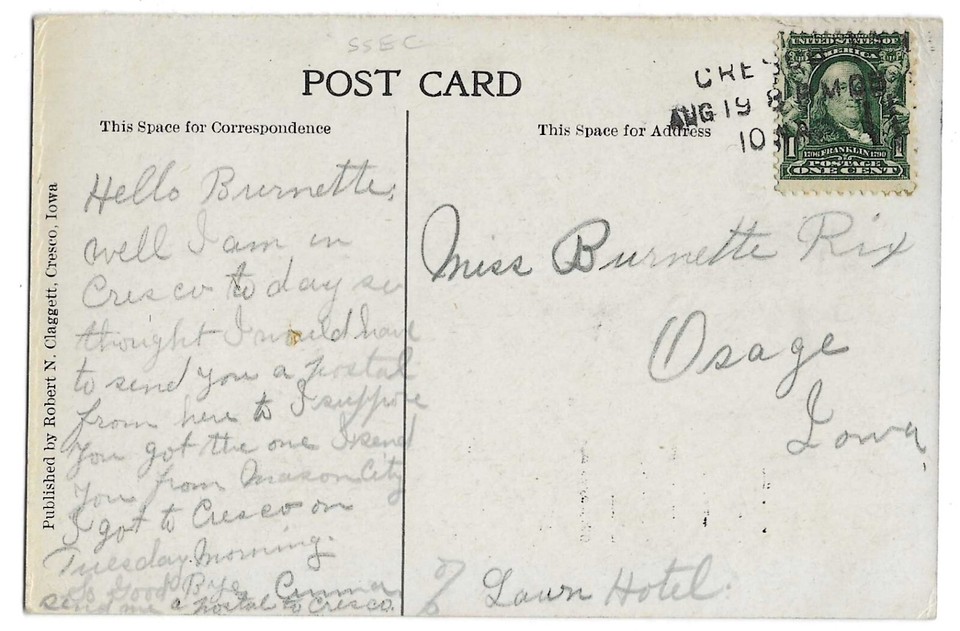 SSEC
POST CARD
This Space for Correspondence
This Space for Address
CRES
AUG 19 8 PM 09
10
UNITED STATES OF
AMERICA
1 1
1706 FRANKLIN 1790
POSTAGE
ONE CENT
Published by Robert N. Claggett, Cresco, Iowa
Hello Burnette,
well I am in
Cresco to day so
thought I would have
to send you a postal
from here to I suppose
you got the one I send
you from Mason City
I got to Cresco on
Tuesday Morning.
So Good Bye,
send me a postal to Cresco.
Miss Burnette Rix
Osage
Iowa,
Lawn Hotel.